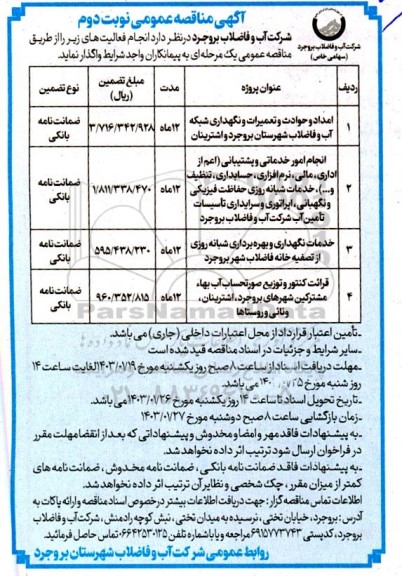 آگهی مناقصه عمومی نوبت دوم
شرکت آب و فاضلاب بروجرد
(سهامی خاص)
شرکت آب و فاضلاب بروجرد در نظر دارد انجام فعالیت های زیر را از طریق
مناقصه عمومی یک مرحله ای به پیمانکاران واجد شرایط واگذار نماید.
ردیف عنوان پروژه مدت مبلغ تضمین (ریال) نوع تضمین
۱ امداد و حوادث و تعمیرات و نگهداری شبکه ۱۲ماه ۳/۷۱۶/۳۴۲/۹۲۸ ضمانت نامه
آب و فاضلاب شهرستان بروجرد و اشترینان بانکی
انجام امور خدماتی و پشتیبانی (اعم از
اداری، مالی، نرم افزاری، حسابداری، تنظیف
۲ و...)، خدمات شبانه روزی حفاظت فیزیکی ۱۲ماه ۱/۸۱۱/۳۳۸/۴۷۰ ضمانت نامه
و نگهبانی، اپراتوری و سرایداری تأسیسات بانکی
تأمین آب شرکت آب و فاضلاب بروجرد
۳ خدمات نگهداری و بهره برداری شبانه روزی ۱۲ماه ۵۹۵/۴۳۸/۲۳۰ ضمانت نامه
از تصفیه خانه فاضلاب شهر بروجرد بانکی
قرائت کنتور و توزیع صورتحساب آب بهاء
۴ مشترکین شهرهای بروجرد، اشترینان، ۱۲ماه ۹۶۰/۳۵۲/۸۱۵ ضمانت نامه
ونائی و روستاها بانکی
ـ تأمین اعتبار قرارداد از محل اعتبارات داخلی (جاری) می باشد.
ـ سایر شرایط و جزئیات در اسناد مناقصه قید شده است
ـ مهلت دریافت اسناد از ساعت ۸ صبح روز یکشنبه مورخ ۱۴۰۳/۰۱/۱۹ لغایت ساعت ۱۴
روز شنبه مورخ می باشد.
ـ تاریخ تحویل اسناد تا ساعت ۱۴ روز یکشنبه مورخ ۱۴۰۳/۰۱/۲۶ می باشد.
ـ زمان بازگشایی ساعت ۸ صبح دوشنبه مورخ ۱۴۰۳/۰۱/۲۷
ـ به پیشنهادات فاقد مهر و امضا و مخدوش و پیشنهاداتی که بعد از انقضا مهلت مقرر
در فراخوان ارسال شود ترتیب اثر داده نخواهد شد.
ـ به پیشنهادات فاقد ضمانت نامه بانکی، ضمانت نامه مخدوش، ضمانت نامه های
کمتر از میزان مقرر، چک شخصی و نظایر آن ترتیب اثر داده نخواهد شد.
اطلاعات تماس مناقصه گزار: جهت دریافت اطلاعات بیشتر در خصوص اسناد مناقصه و ارائه پاکات به
آدرس: بروجرد، خیابان تختی، نرسیده به میدان تختی، نبش کوچه رادمنش، شرکت آب و فاضلاب
بروجرد، کدپستی ۶۹۱۵۷۷۳۷۴۳ مراجعه و یا با شماره تلفن ۰۶۶۴۲۵۳۰۱۲۵ تماس حاصل فرمائید.
روابط عمومی شرکت آب و فاضلاب شهرستان بروجرد